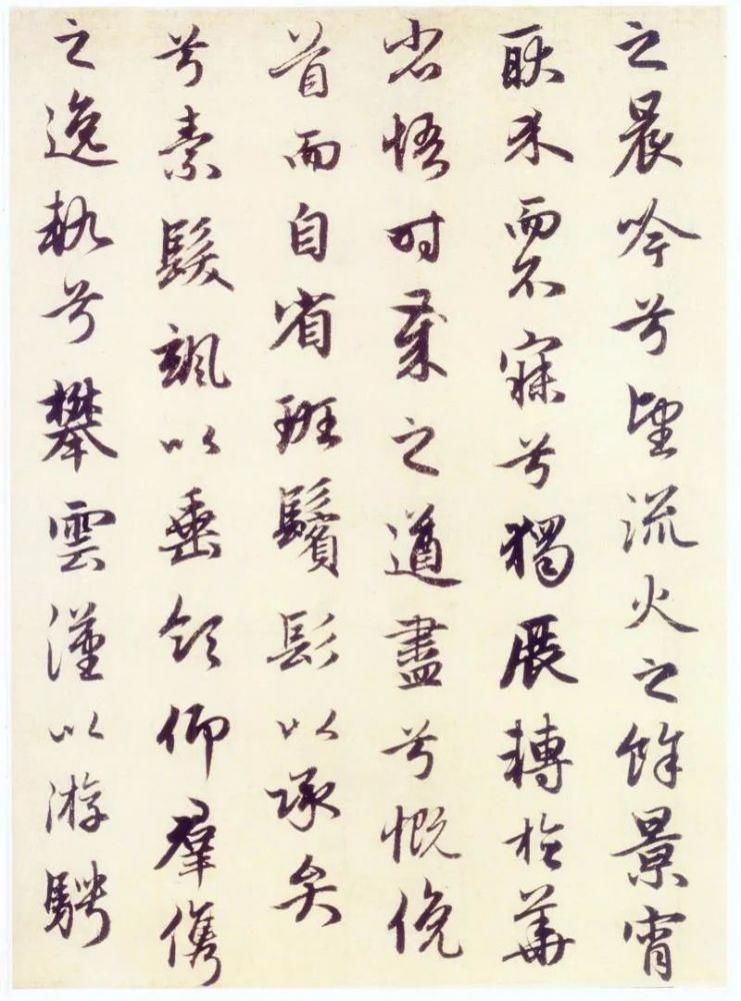 之晨吟兮望流火之餘景宵
耿介而不寐兮獨展轉於華
省悟時歲之遒盡兮慨俛
首而自省班鬢髟以承弁
兮素髮颯以垂領仰羣儁
之逸軌兮攀雲漢以游騁